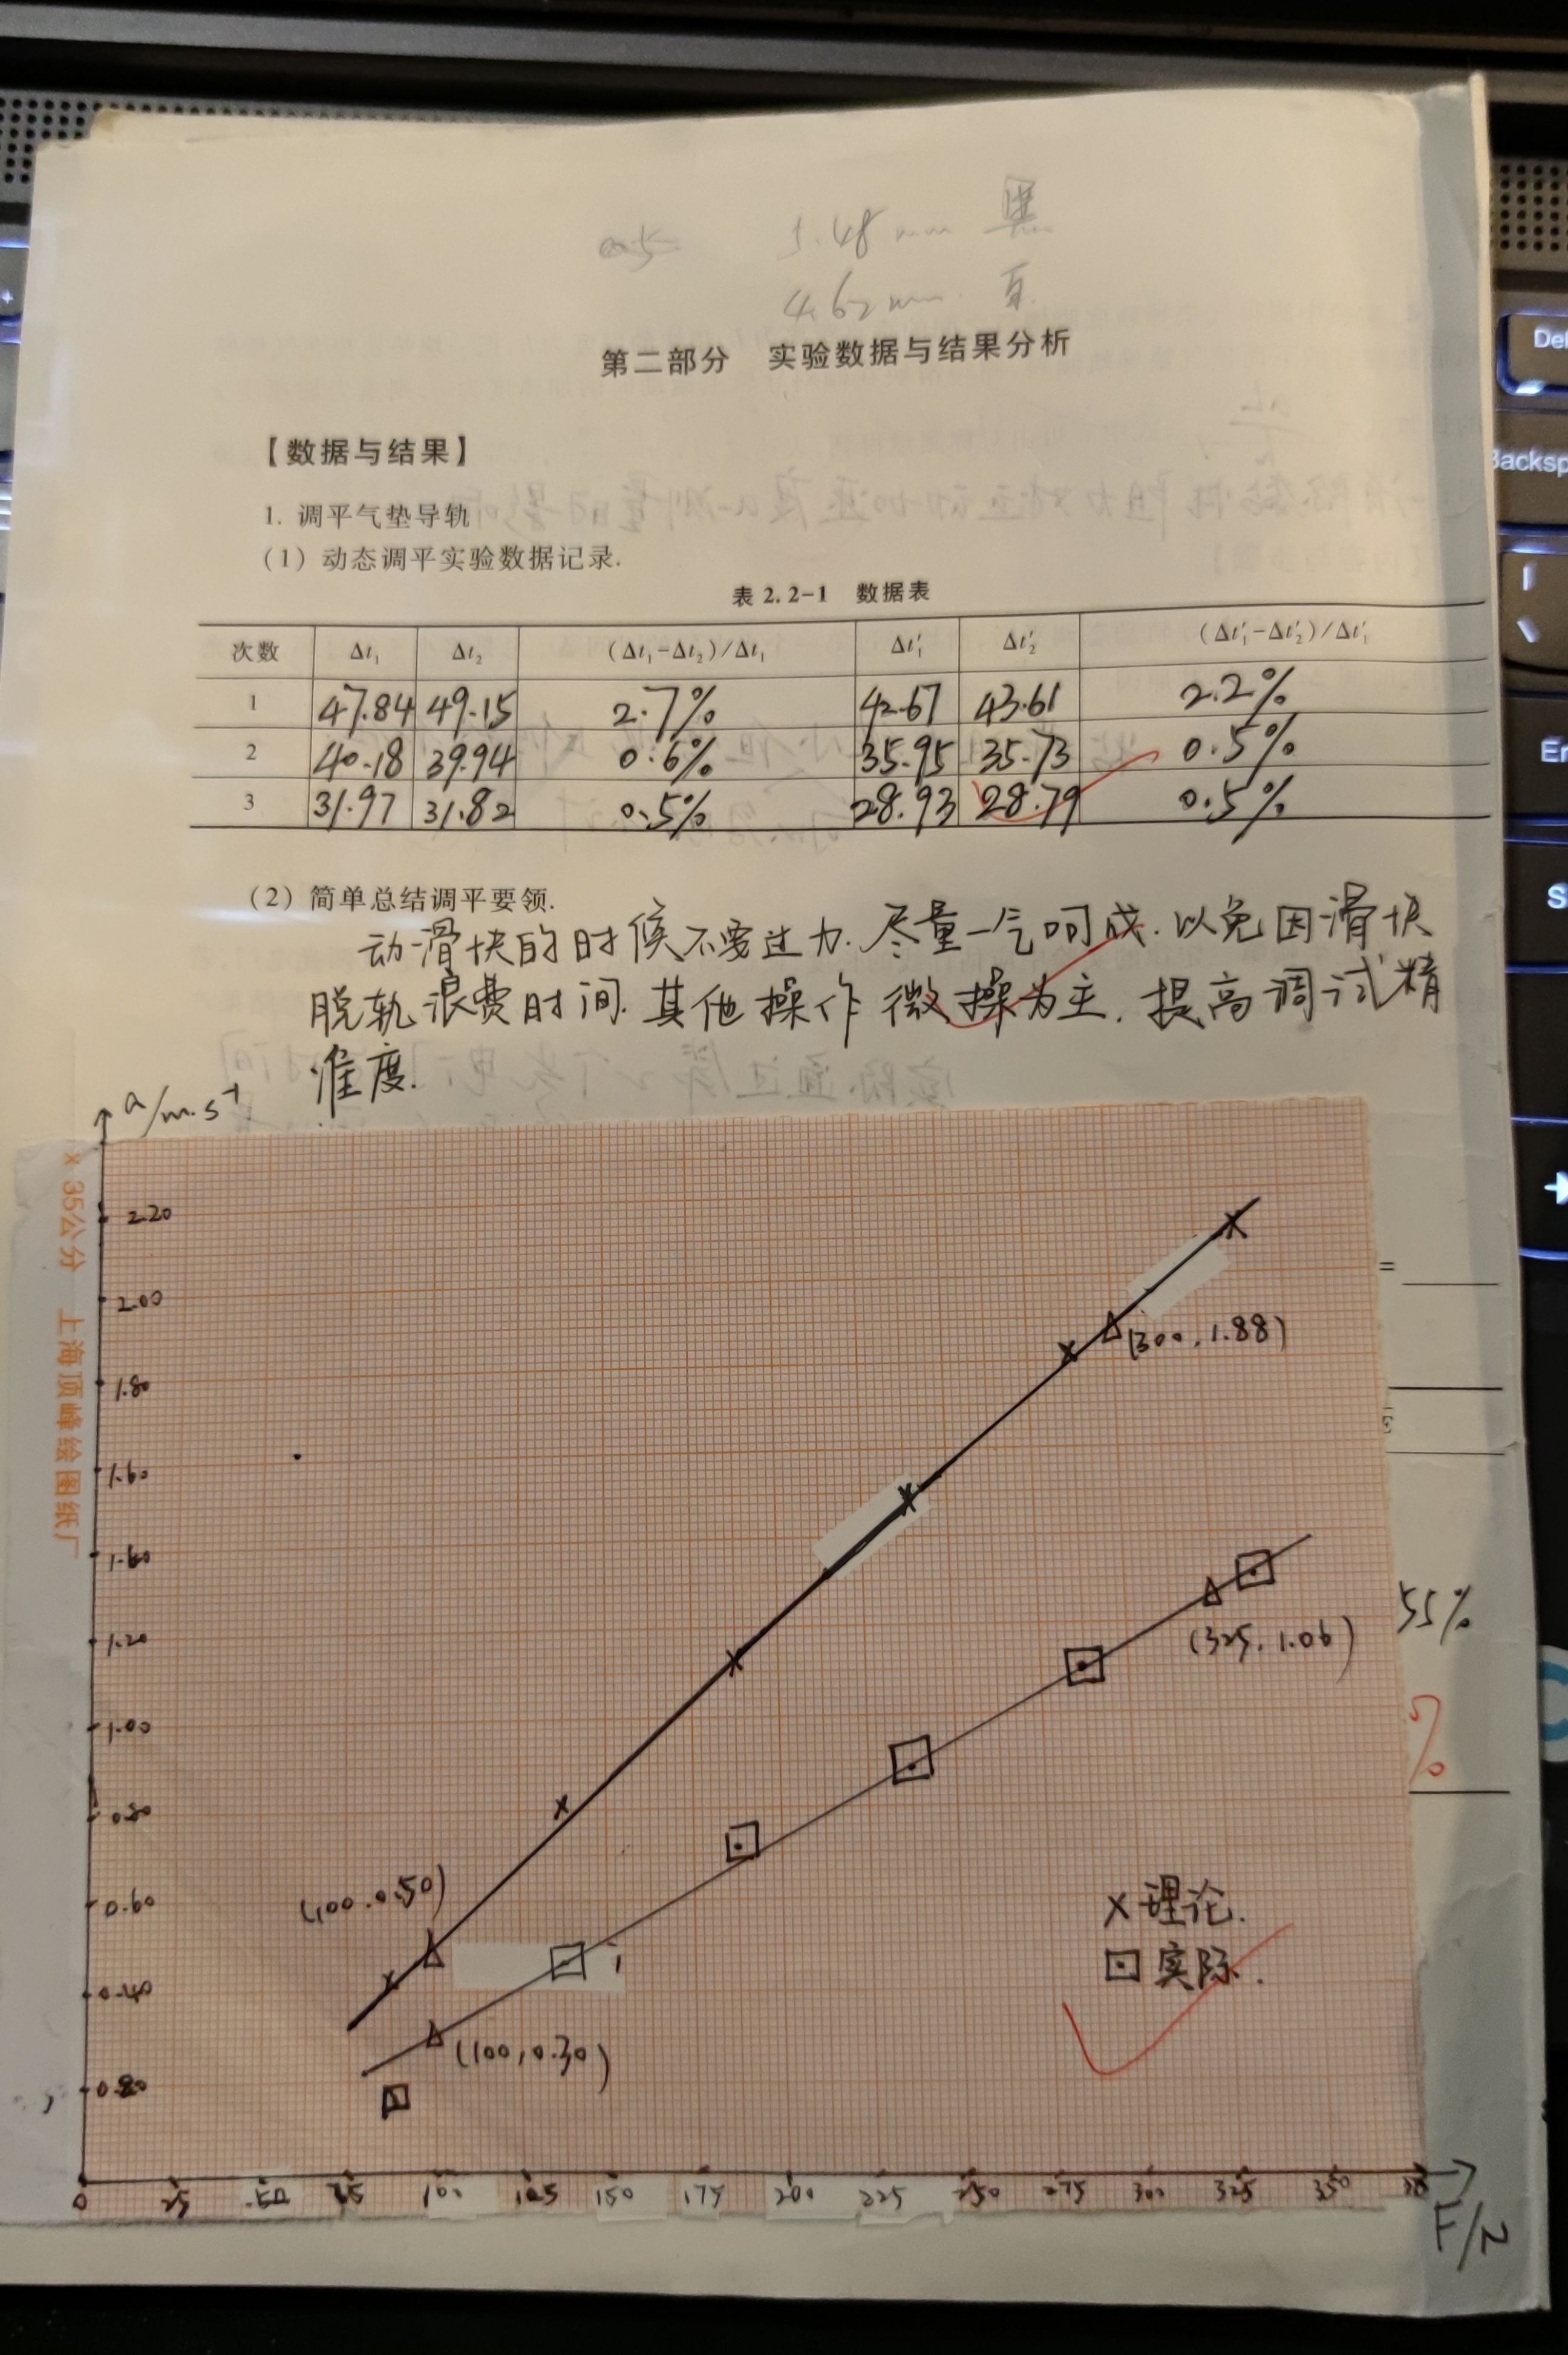 5.48 mm 黑
4.62 mm.
第二部分 实验数据与结果分析
【数据与结果】
1. 调平气垫导轨
(1) 动态调平实验数据记录.
表 2.2-1 数据表
次数 Δt₁ Δt₂ (Δt₁-Δt₂)/Δt₁ Δt₁′ Δt₂′ (Δt₁′-Δt₂′)/Δt₁′
1 47.84 49.15 2.7% 42.67 43.61 2.2%
2 40.18 39.94 0.6% 35.95 35.73 0.5%
3 31.97 31.82 0.5% 28.93 28.79 0.5%
(2) 简单总结调平要领.
动滑快的时候不要过力.尽量一气呵成.以免因滑快
脱轨浪费时间.其他操作微操为主.提高调试精
准度.
a/m.s⁻¹
x 35公分 上海顶峰绘图纸厂
2.20
2.00
=
(300,1.88)
1.80
1.60
1.60
55%
1.20
(325,1.06)
1.00
%
0.80
(100.0.50)
0.60
X 理论.
⊡ 实际.
0.40
(100,0.30)
0.80
0 25 50 75 100 125 150 175 200 225 250 275 300 325 350
F/N
Del
Backsp